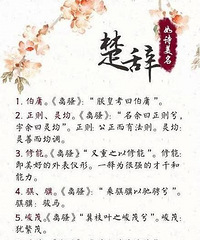 如诗美名
楚辞
1. 伯庸。《离骚》：“朕皇考曰伯庸”。
2. 正则、灵均。《离骚》：“名余曰正则兮，
字余曰灵均”。正则：公正而有法则。灵均：
灵善而均调。
3. 修能。《离骚》“又重之以修能”。修能：
即美好的外表仪形。一释为很强的才干和
能力。
4. 骐、骥。《离骚》：“乘骐骥以驰骋兮”。
骐骥：骏马。
5. 峻茂。《离骚》“冀枝叶之峻茂兮”。峻茂：
犹繁茂。